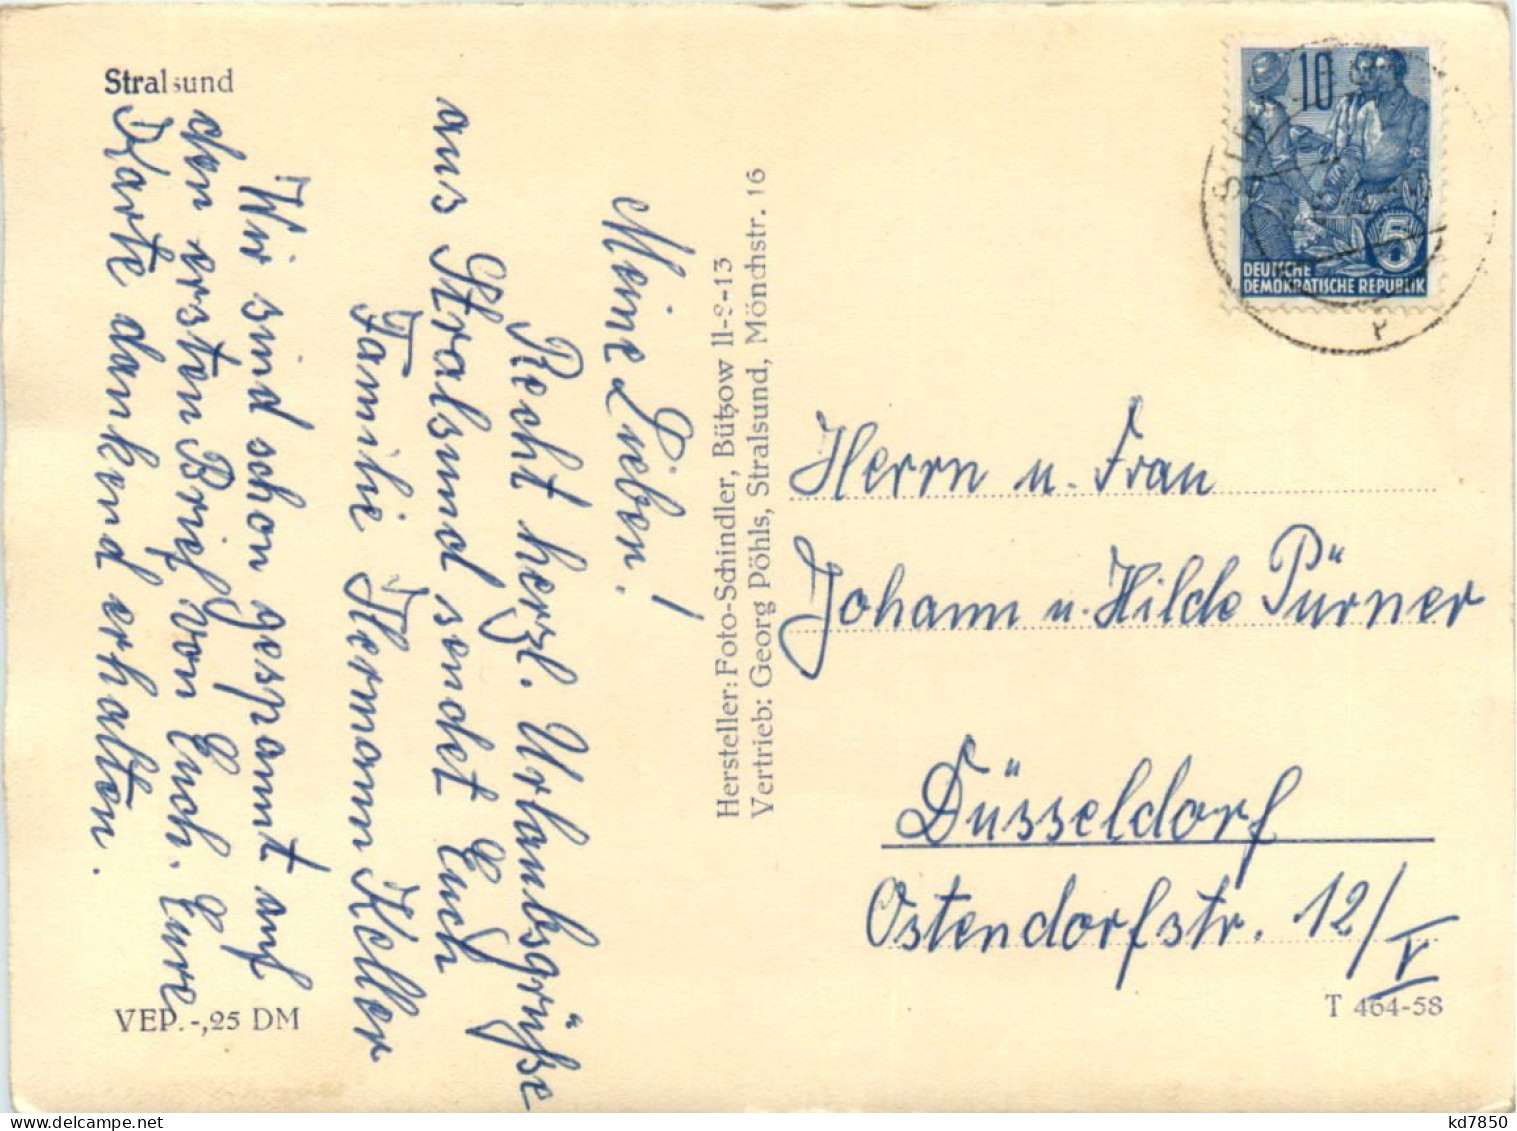 Stralsund
Meine Lieben!
Recht herzl. Urlaubsgrüße
aus Stralsund sendet Euch
Familie Hermann Keller
Wir sind schon gespannt auf
den ersten Brief von Euch. Eure
Karte dankend erhalten.
VEP. -,25 DM
Hersteller: Foto-Schindler, Bützow II-9-13
Vertrieb: Georg Pöhls, Stralsund, Mönchstr. 16
10
5
DEUTSCHE
DEMOKRATISCHE REPUBLIK
Herrn u. Frau
Johann u. Hilde Pürner
Düsseldorf
Ostendorfstr. 12/V
T 464-58
kd7850